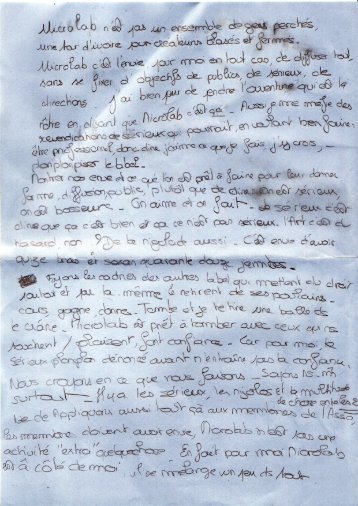 Microlab n'est pas un ensemble de gens perchés,
une tour d'ivoire pour créateurs blasés et fermés.
Microlab c'est l'envie, pour moi en tout cas, de diffuser tout,
sans se fixer d'objectifs de publics, de sérieux, de
directions. J'ai bien peur de rendre l'aventure qui est la
nôtre en disant que Microlab c'est ça. Aussi je me méfie des
revendications de sérieux qui pourrait, en voulant bien faire:
être professionnel donc dire j'aime ce que je fais, j'y crois, -
Montrer nos envie et ce que l'on est prêt à faire pour leur donner
forme, diffusion, public, plutôt que de dire on est sérieux
on est bosseurs. On aime et on fait. Le sérieux c'est
dire que ça c'est bien et ça ce n'est pas sérieux. l'Art c'est du
hasard, non? De la rigolade aussi. C'est envie d'avoir
quize bras et soixante douze jambes.
Fuyons les cadres des autres label qui mettent du droit
partout et par la même retirent de ses
cours, gagne, donne. Tombe et je te tire une balle dans
le crâne. Microlab est prêt à tomber avec ceux qui ne
sachent / plaisent, font confiance. Car pour moi le
sérieux énoncé avant n'entraine pas la confiance.
Nous croyons en ce que nous faisons. Soyons
surtout - Il y a les sérieux, les rigolos et la multitude
de chose entre les 2
de Appliquons aussi tout ça aux membres de l'Asso,
les membres doivent avoir envie, Microlab n'est pas une
activité "extra" quelquechose. En fait pour moi Microlab
est à côté de moi, il se mélange un peu de tout